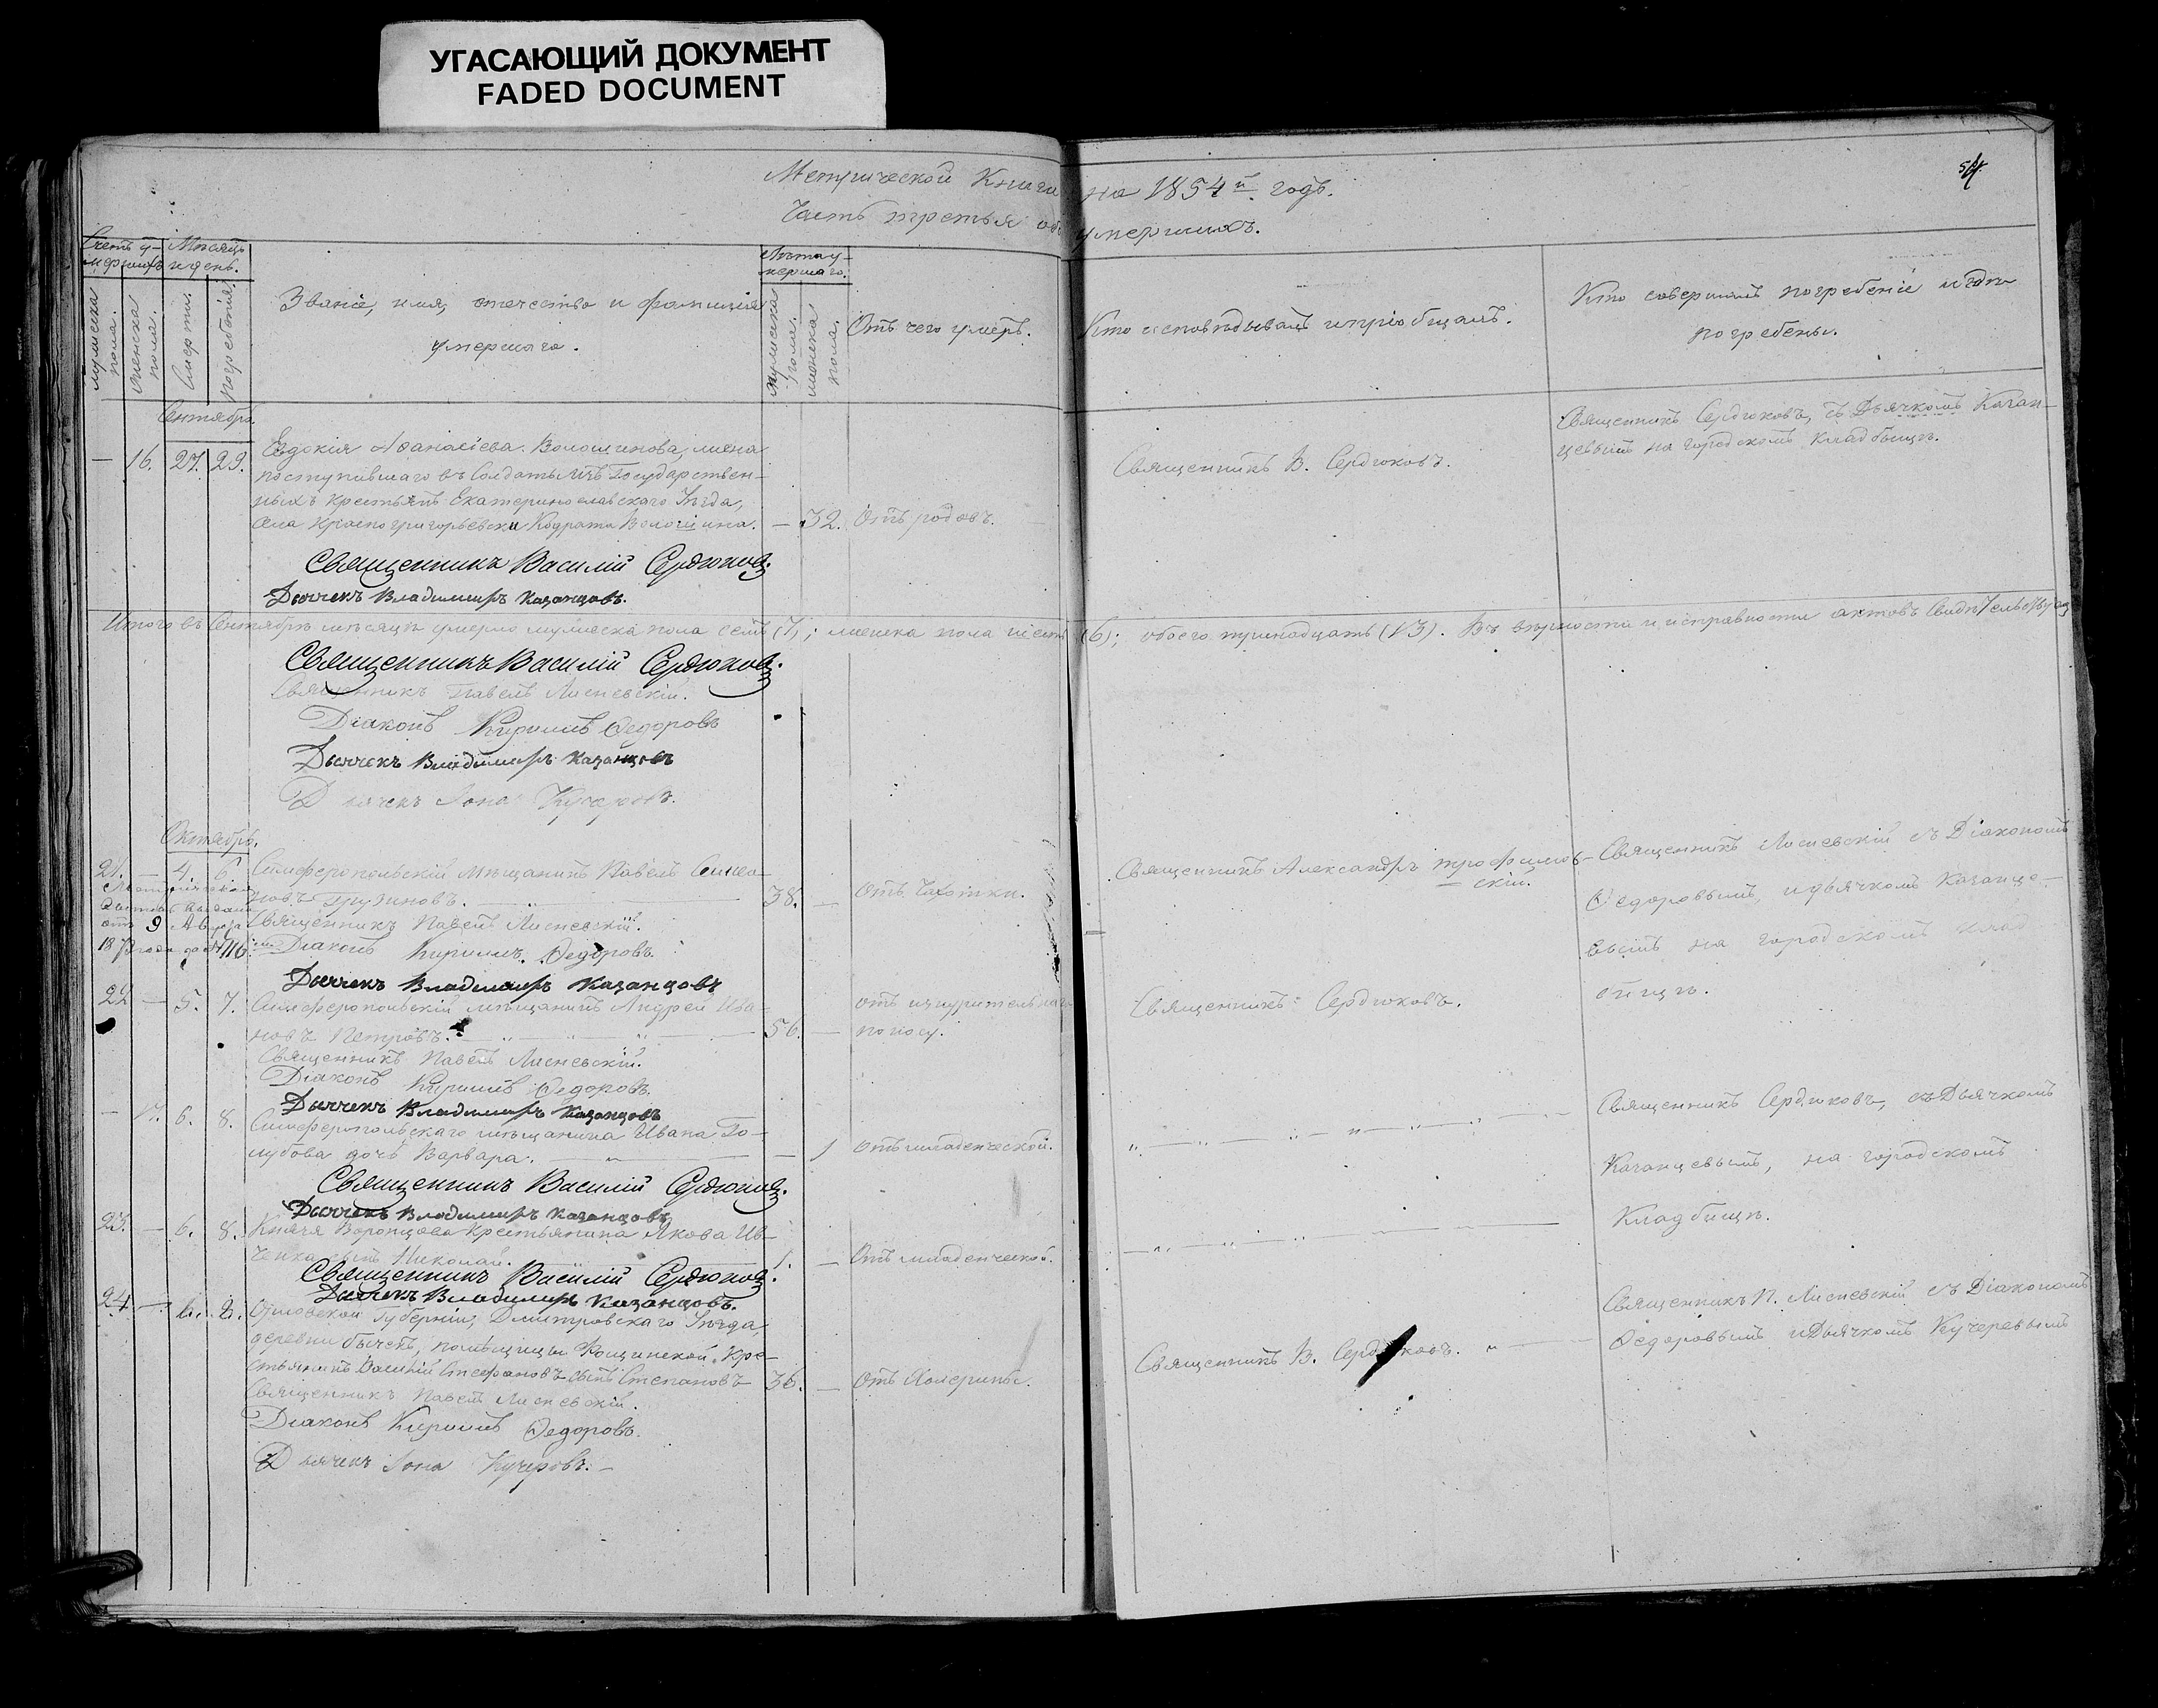 УГАСАЮЩИЙ ДОКУМЕНТ
FADED DOCUMENT
54.
Метрической Книги на 1854й годъ.
Часть третья объ умершихъ.
Счетъ у-
мершихъ
Мѣсяцъ
и день.
мужеска пола.
женска пола.
Смерти.
погребенія.
Званіе, имя, отечество и фамилія
умершаго.
Лѣта у-
мершаго.
мужеска пола.
женска пола.
Отъ чего умеръ.
Кто исповѣдывалъ и пріобщалъ.
Кто совершалъ погребеніе и гдѣ
погребены.
Сентябрь
— 16. 27. 29. Евдокія Аѳанасіева Волошинова, жена
поступившаго въ Солдаты изъ Государствен-
ныхъ крестьянъ Екатеринославскаго Уѣзда,
села Красногригорьевски Кодрата Волошина. — 32. Отъ родовъ.
Священникъ В. Сердюковъ.
Священникъ Сердюковъ, съ Дьячкомъ Казан-
цевымъ на городскомъ кладбищѣ.
Священникъ Василій Сердюковъ.
Дьячекъ Владимиръ Казанцовъ.
Итого въ Сентябрѣ мѣсяцѣ умерло мужеска пола семь (7); женска пола шесть (6); обоего тринадцать (13). Въ вѣрности и исправности актовъ Свидѣтельствуемъ
Священникъ Василій Сердюковъ.
Священникъ Павелъ Лисневскій.
Діаконъ Кириллъ Ѳедоровъ
Дьячекъ Владимиръ Казанцовъ
Дьячекъ Іона Кучеровъ.
Октябрь.
21. — 4. 6. Симферопольскій Мѣщанинъ Павелъ Симео-
новъ Грузиновъ. — 38. — Отъ Чахотки.
отъ 9 Августа
187 года за № 116
Священникъ Александръ Трофимов-
скій.
Священникъ Лисневскій съ Діакономъ
Ѳедоровымъ, и дьячкомъ Казанце-
вымъ на городскомъ клад-
бищѣ.
Священникъ Павелъ Лисневскій.
Діаконъ Кириллъ Ѳедоровъ.
Дьячекъ Владимиръ Казанцовъ
22 — 5. 7. Симферопольскій мѣщанинъ Андрей Ива-
новъ Петровъ. — 56. — отъ изнурительнаго
поносу.
Священникъ Сердюковъ.
Священникъ Павелъ Лисневскій.
Діаконъ Кириллъ Ѳедоровъ.
Дьячекъ Владимиръ Казанцовъ
— 17. 6. 8. Симферопольскаго мѣщанина Ивана Го-
лубова дочь Варвара. — 1 отъ младенческой.
Священникъ Сердюковъ, съ Дьячкомъ
Казанцевымъ, на городскомъ
Кладбищѣ.
Священникъ Василій Сердюковъ.
Дьячекъ Владимиръ Казанцовъ
23. — 6. 8. Князя Воронцова Крестьянина Якова Ив-
ченка сынъ Николай. 1. — Отъ младенческой.
Священникъ Василій Сердюковъ.
Дьячекъ Владимиръ Казанцовъ.
24 — 6. 8. Орловской Губерніи, Дмитровскаго Уѣзда,
деревни помѣщицы Кре-
стьянинъ Василій Стефановъ сынъ Степановъ 36. — Отъ Холерины.
Священникъ В. Сердюковъ.
Священникъ П. Лисневскій съ Діакономъ
Ѳедоровымъ и Дьячкомъ Кучеревымъ
Священникъ Павелъ Лисневскій.
Діаконъ Кириллъ Ѳедоровъ.
Дьячекъ Іона Кучеровъ.